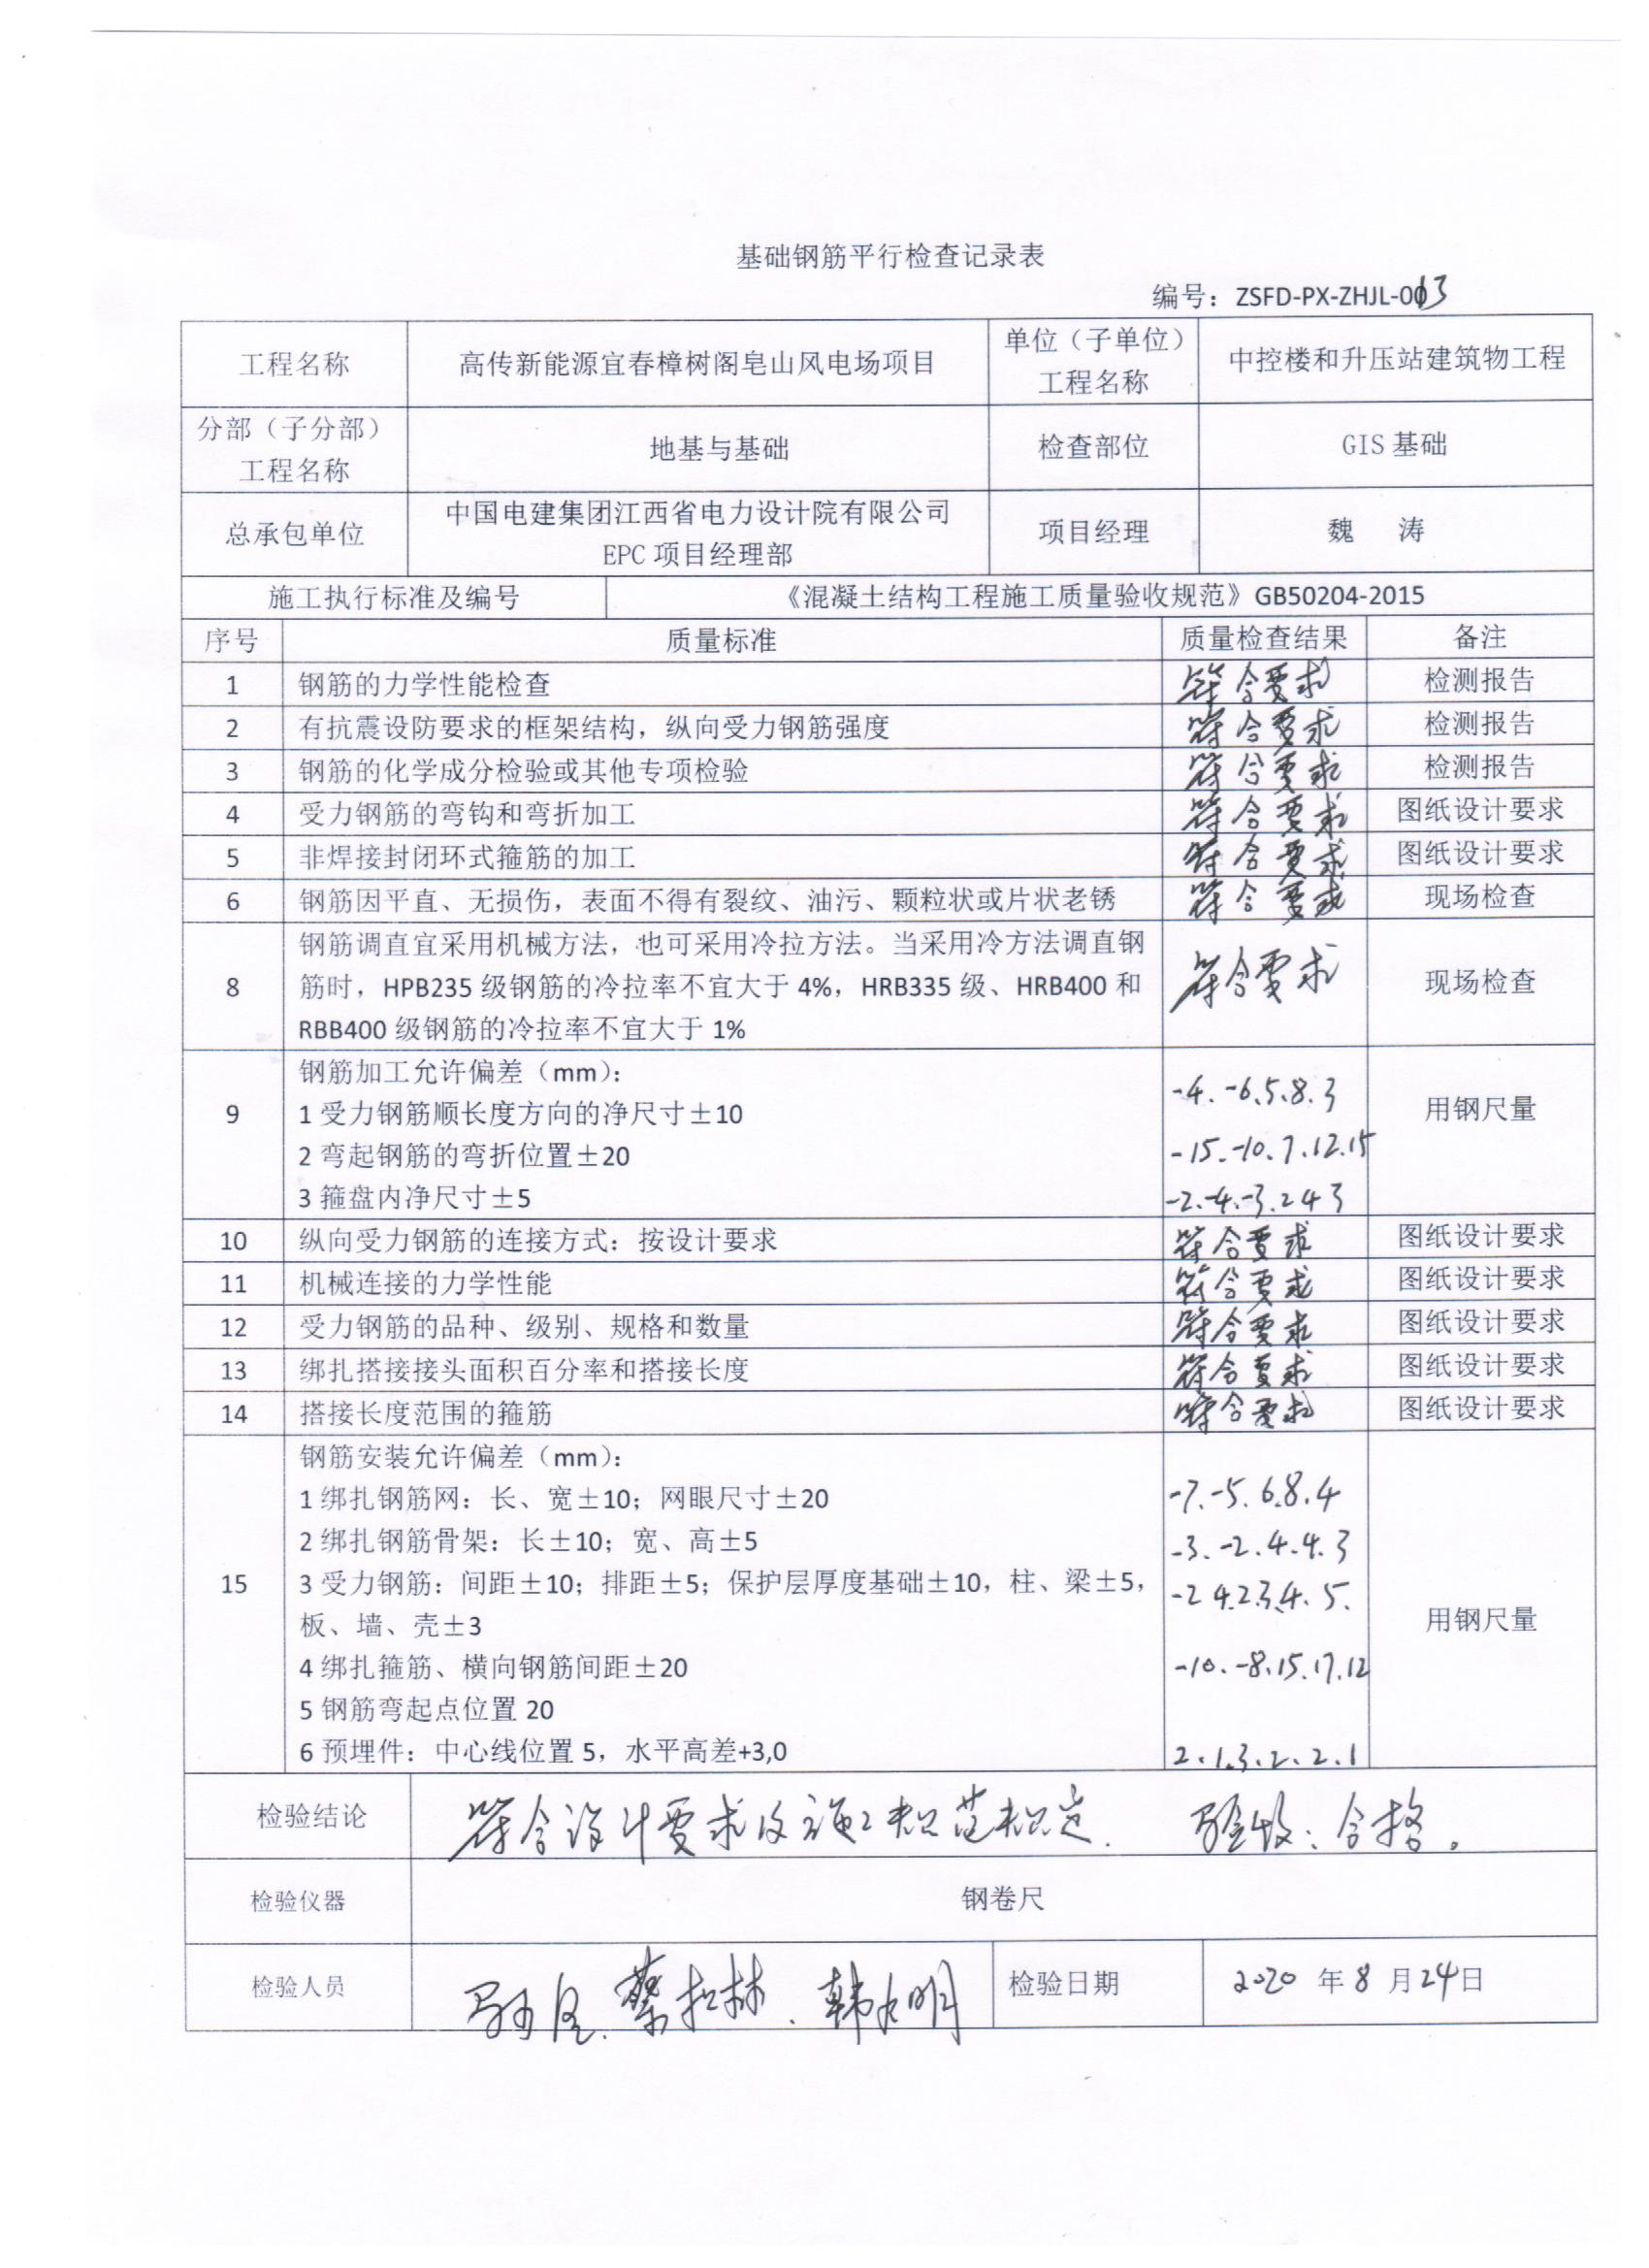 基础钢筋平行检查记录表
编号：ZSFD-PX-ZHJL-0013
工程名称 高传新能源宜春樟树阁皂山风电场项目 单位（子单位）工程名称 中控楼和升压站建筑物工程
分部（子分部）工程名称 地基与基础 检查部位 GIS 基础
总承包单位 中国电建集团江西省电力设计院有限公司 EPC 项目经理部 项目经理 魏 涛
施工执行标准及编号 《混凝土结构工程施工质量验收规范》GB50204-2015
序号 质量标准 质量检查结果 备注
1 钢筋的力学性能检查 符合要求 检测报告
2 有抗震设防要求的框架结构，纵向受力钢筋强度 符合要求 检测报告
3 钢筋的化学成分检验或其他专项检验 符合要求 检测报告
4 受力钢筋的弯钩和弯折加工 符合要求 图纸设计要求
5 非焊接封闭环式箍筋的加工 符合要求 图纸设计要求
6 钢筋因平直、无损伤，表面不得有裂纹、油污、颗粒状或片状老锈 符合要求 现场检查
钢筋调直宜采用机械方法，也可采用冷拉方法。当采用冷方法调直钢
8 筋时，HPB235 级钢筋的冷拉率不宜大于 4%，HRB335 级、HRB400 和 符合要求 现场检查
RBB400 级钢筋的冷拉率不宜大于 1%
钢筋加工允许偏差（mm）：
9 1 受力钢筋顺长度方向的净尺寸±10 -4、-6、5、8、3 用钢尺量
2 弯起钢筋的弯折位置±20 -15、-10、7、12、15
3 箍盘内净尺寸±5 -2、-4、-3、2 4 3
10 纵向受力钢筋的连接方式：按设计要求 符合要求 图纸设计要求
11 机械连接的力学性能 符合要求 图纸设计要求
12 受力钢筋的品种、级别、规格和数量 符合要求 图纸设计要求
13 绑扎搭接接头面积百分率和搭接长度 符合要求 图纸设计要求
14 搭接长度范围的箍筋 符合要求 图纸设计要求
钢筋安装允许偏差（mm）：
1 绑扎钢筋网：长、宽±10；网眼尺寸±20 -7、-5、6、8、4
2 绑扎钢筋骨架：长±10；宽、高±5 -3、-2、4、4、3
15 3 受力钢筋：间距±10；排距±5；保护层厚度基础±10，柱、梁±5， -2 4、2、3、4、5、
板、墙、壳±3 用钢尺量
4 绑扎箍筋、横向钢筋间距±20 -10、-8、15、17、12
5 钢筋弯起点位置 20
6 预埋件：中心线位置 5，水平高差+3,0 2、1、3、2、2、1
检验结论 符合设计要求及施工规范规定. 验收：合格。
检验仪器 钢卷尺
检验人员 检验日期 2020 年 8 月 24 日